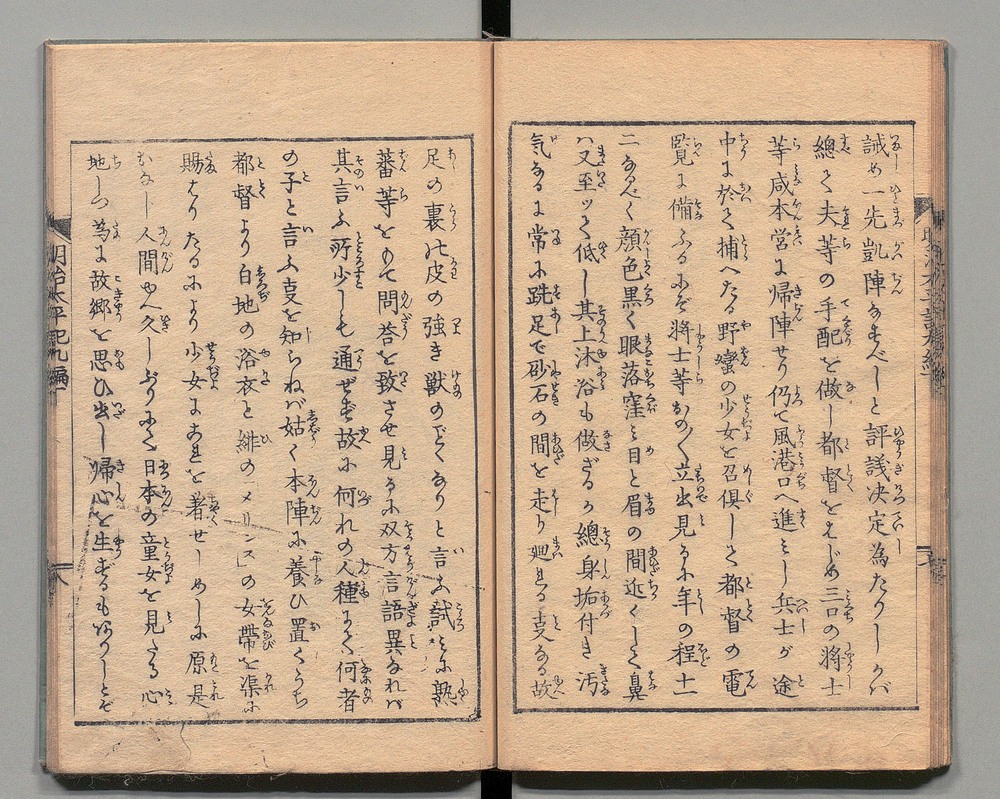 誡め一先凱陣なすべしと評議决定為たりしかバ
總て夫等の手配を做し都督をはじめ三口の将士
等咸本営に帰陣せり仍て風港口へ進ミし兵士が途
中に於て捕へたる野蠻の少女を召倶して都督の電
覧に備ふるにぞ将士等おの〱立出見るに年の程十
二なるべく顔色黒く眼落窪ミ目と眉の間近くして鼻
ハ又至ッて低し其上沐浴も做ざるか總身垢付き汚
気なるに常に跣足で砂石の間を走り廻ほる事なる故
足の裏の皮の強き獣のごとくなりと言ふ試ミに熟
蕃等をもて問答を致させ見るに双方言語異なれバ
其言ふ所少しも通ぜず故に何れの人種にて何者
の子と言ふ事を知らねバ姑く本陣に養ひ置くうち
都督より白地の浴衣と緋の「メリンス」の女帶を渠に
賜はりたるにより少女にこれを著せしめしに原是
おなし人間也久しぶりにて日本の童女を見たる心
地しつ為に故郷を思ひ出し帰心を生ずるも有りしとぞ
明治太平記九編
八